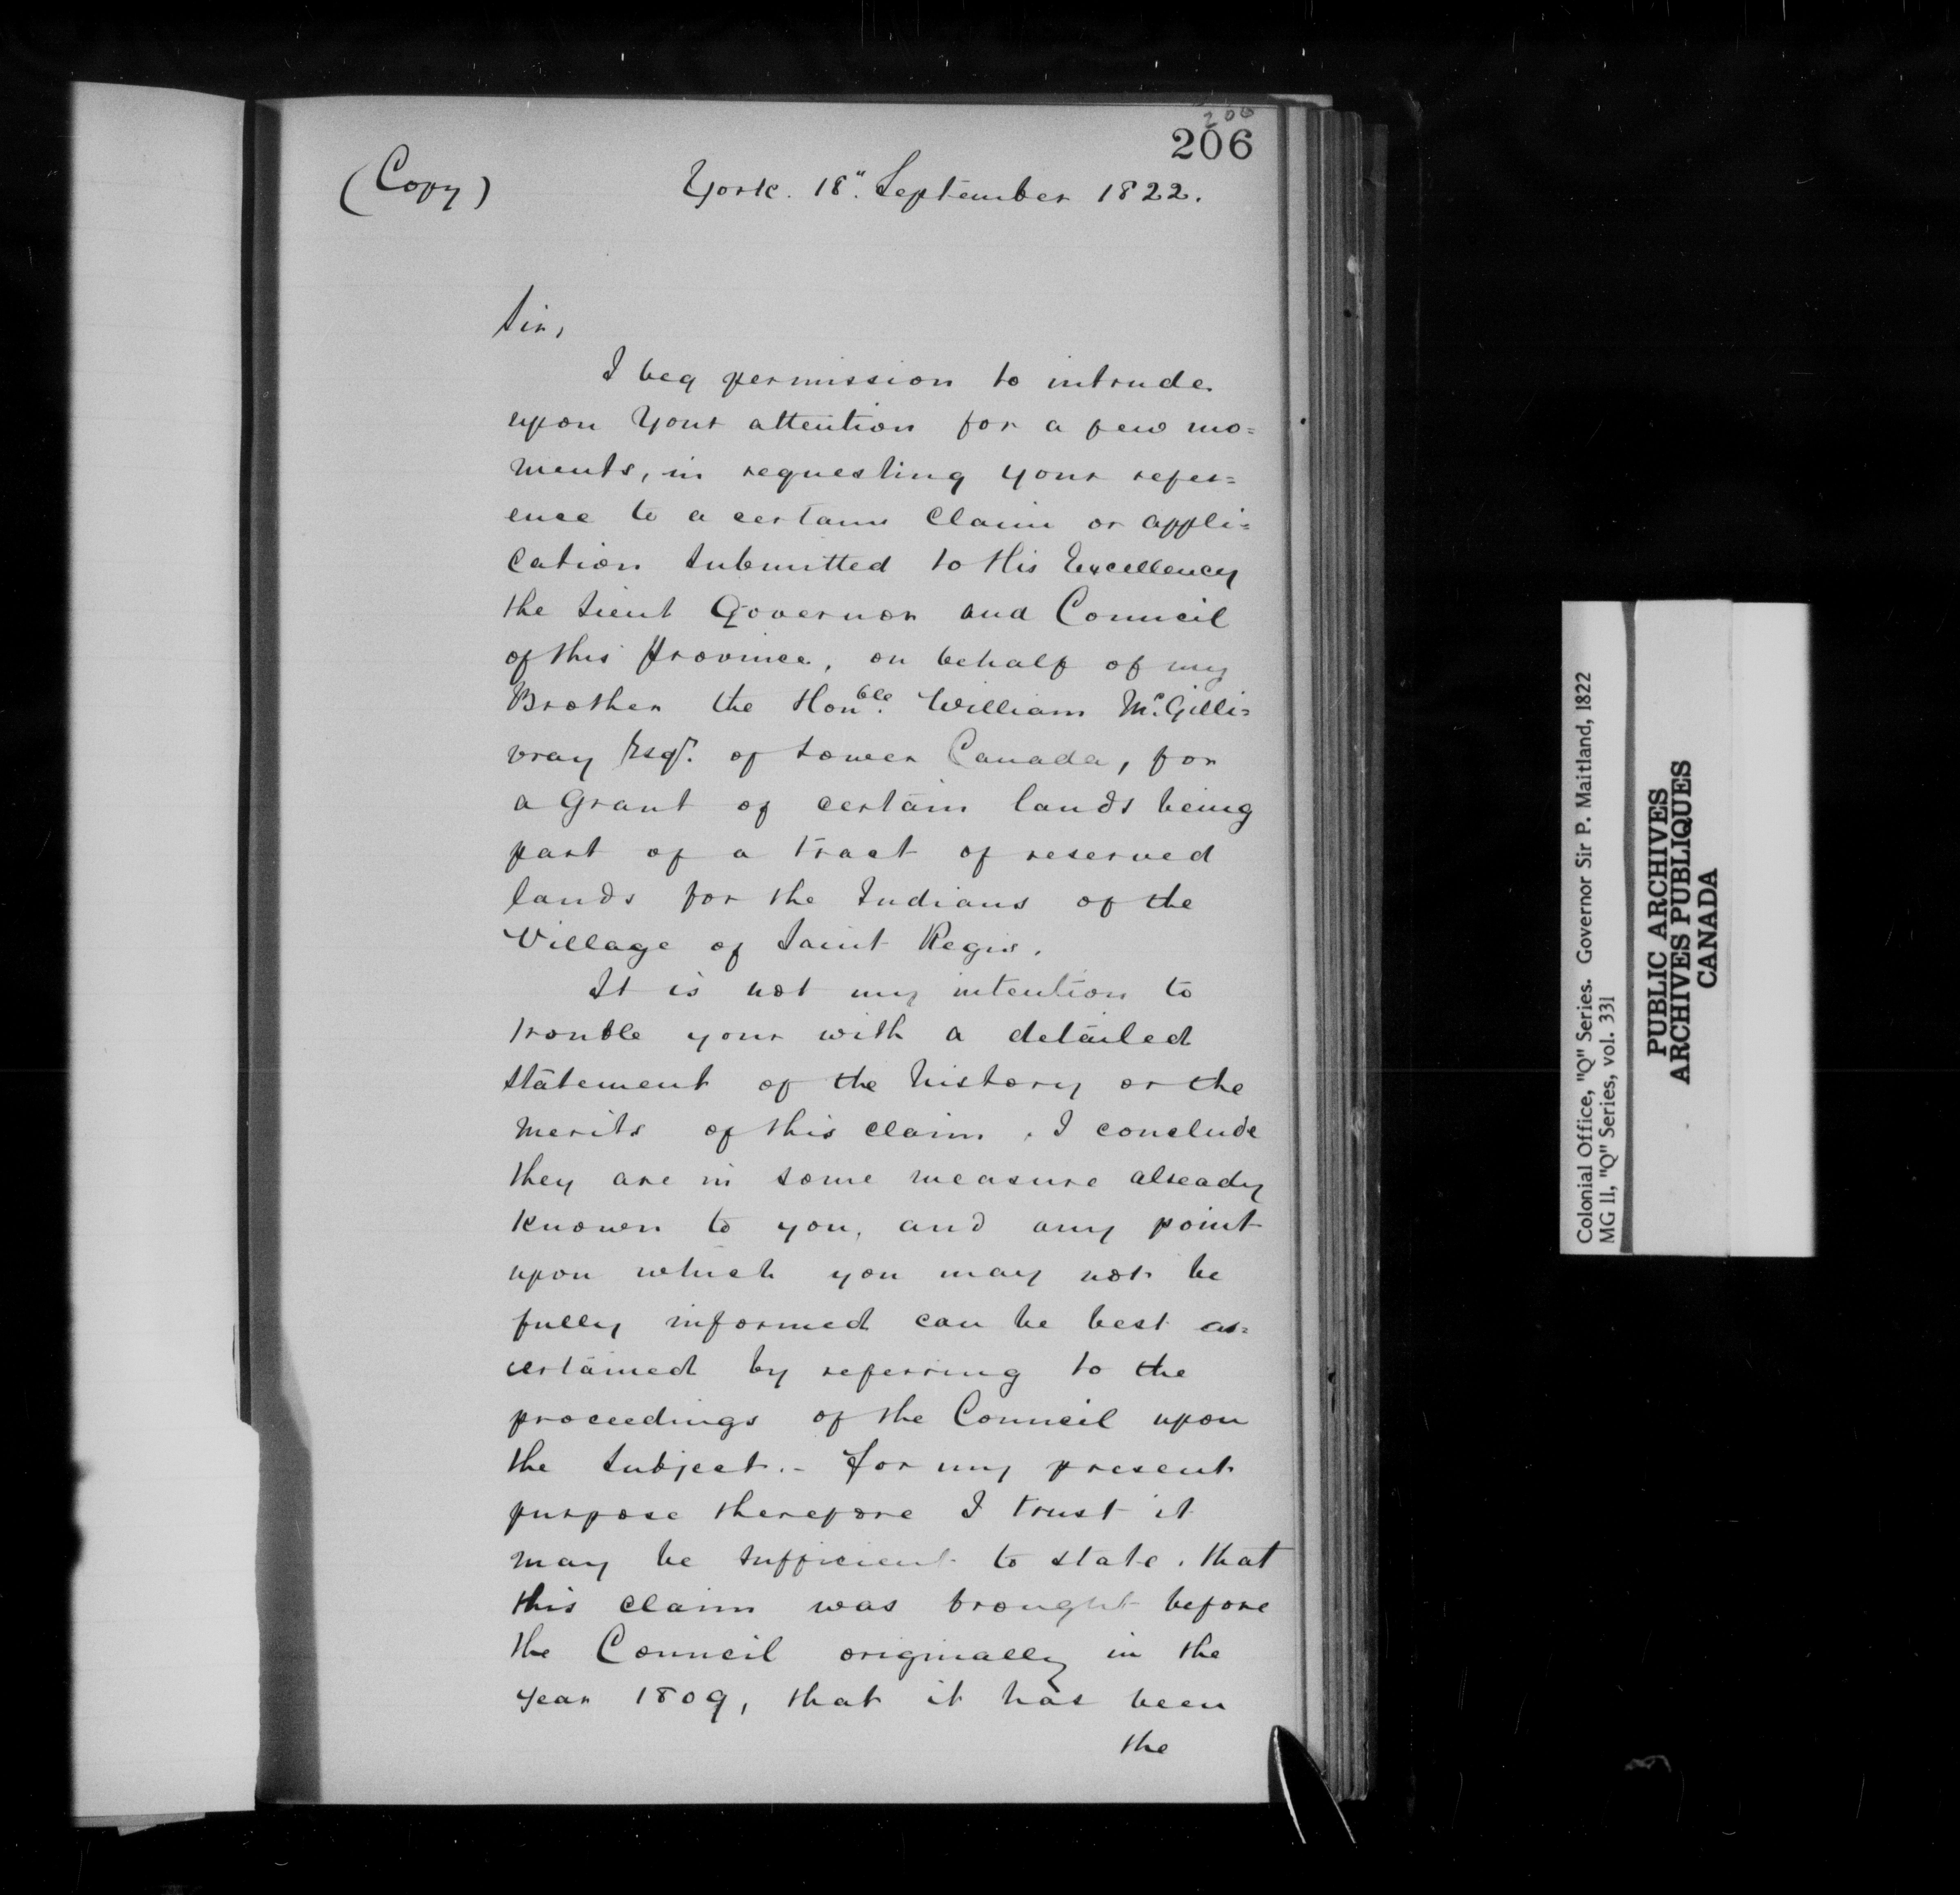 206
206
(Copy) York. 18". September 1822.
Sir,
I beg permission to intrude
upon Your attention for a few mo=
ments, in requesting your refer=
ence to a certain Claim or appli=
cation submitted to His Excellency
the Lieut Governor and Council
of this Province, on behalf of my
Brother the Honble. William McGilli=
vray Esqr. of Lower Canada, for
a Grant of certain lands being
part of a tract of reserved
lands for the Indians of the
Village of Saint Regis.
It is not my intention to
trouble your with a detailed
statement of the history or the
merits of this claim. I conclude
they are in some measure already
known to you, and any point
upon which you may not be
fully informed can be best as=
certained by referring to the
proceedings of the Council upon
the Subject.- For my present
purpose therefore I trust it
may be sufficient to state, that
this claim was brought before
the Council originally in the
year 1809, that it has been
the
Colonial Office, "Q" Series. Governor Sir P. Maitland, 1822
MG 11, "Q" Series, vol. 331
PUBLIC ARCHIVES
ARCHIVES PUBLIQUES
CANADA